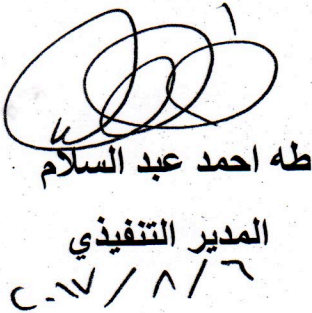 طه احمد عبد السلام
المدير التنفيذي
٢٠١٧ / ٨ / ٦